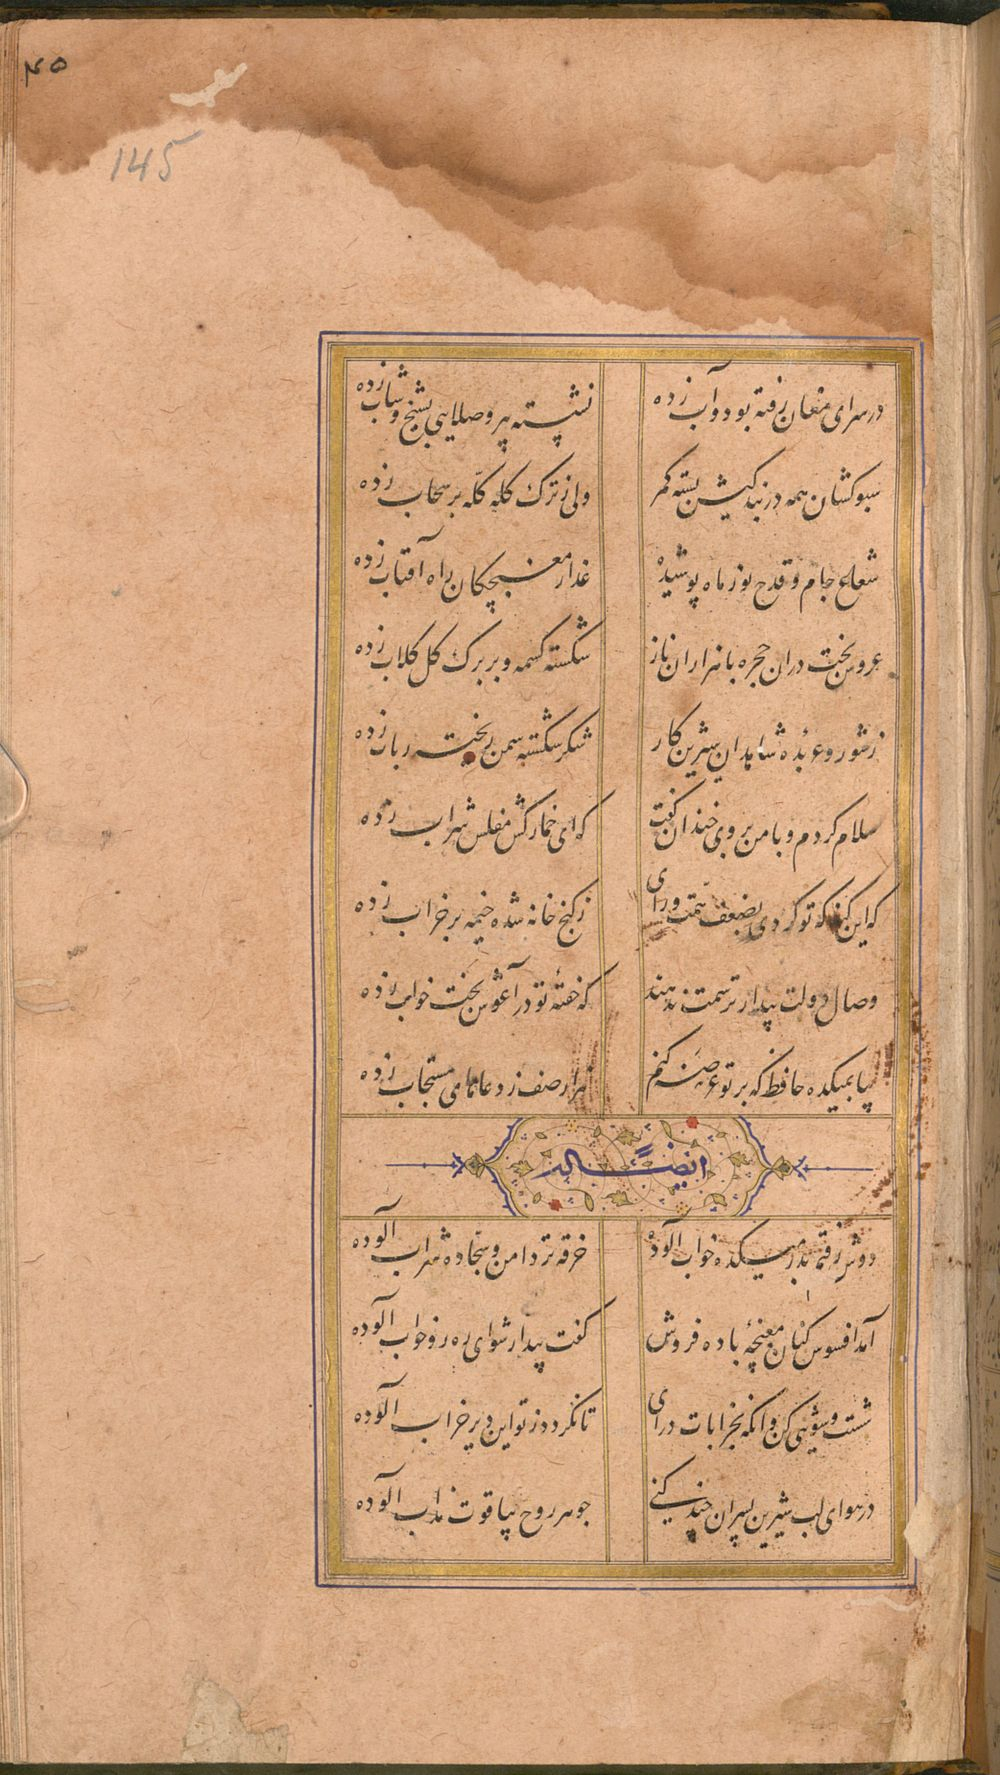 ۴۵
145
در سرای مغان رفته بود و آب زده نشسته پیر و صلایی بشیخ و شاب زده
سبوکشان همه در بندکیش بسته کمر ولی ز ترک کله کله بر سحاب زده
شعاع جام و قدح نور ماه پوشیده عذار مغبچکان راه آفتاب زده
عروس بخت دران حجره با هزاران ناز شکسته کسمه و بر برک کل کلاب زده
ز شور و عربده شاهدان شیرین کار شکر شکسته سمن ریخته رباب زده
سلام کردم و با من بروی خندان گفت که ای خمارکش مفلس شراب زده
که این کند که تو کردی بضعف همت و رای ز کنج خانه شده خیمه بر خراب زده
وصال دولت بیدار ترسمت ندهند که خفتهٔ تو در آغوش بخت خواب زده
بیا بمیکده حافظ که بر تو عرضه کنم هزار صف ز دعاهای مستجاب زده
ایضاً له
دوش رفتم بدر میکده خواب آلوده خرقه تر دامن و سجاده شراب آلوده
آمد افسوس کنان مغبچهٔ باده فروش کفت بیدار شو ای ره رو خواب آلوده
شست و شویی کن و آنکه بخرابات درای تا نکردد ز تو این دیر خراب آلوده
در هوای لب شیرین پسران چند کنی جوهر روح بیاقوت مذاب آلوده